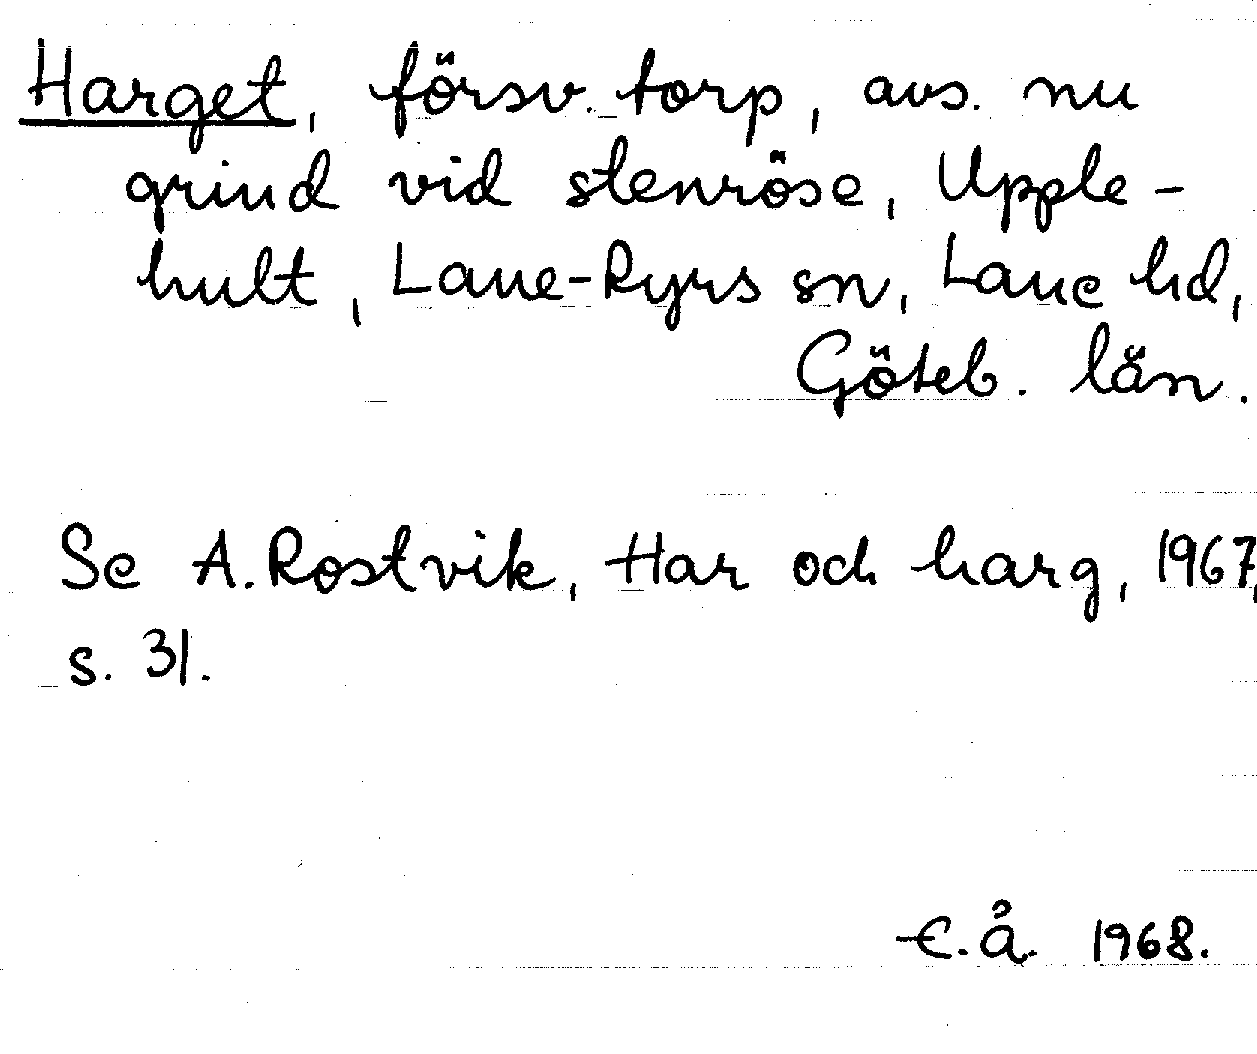 Harget, försv. torp, avs. nu
grind vid stenröse, Upple-
hult, Lane-Ryrs sn, Lane hd,
Göteb. län.
Se A. Rostvik, Har och harg, 1967,
s. 31.
E.Å. 1968.